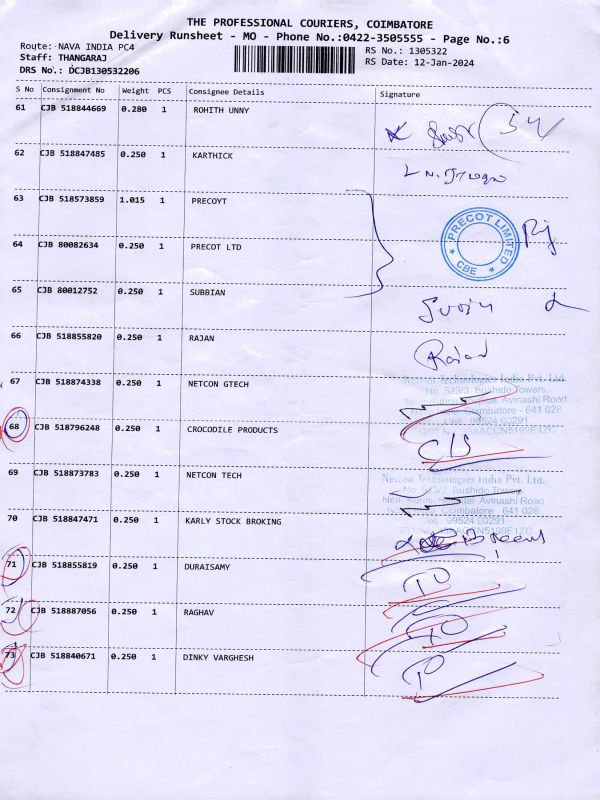 THE PROFESSIONAL COURIERS, COIMBATORE
Delivery Runsheet - MO - Phone No.:0422-3505555 - Page No.:6
Route: NAVA INDIA PC4
RS No.: 1305322
Staff: THANGARAJ
RS Date: 12-Jan-2024
DRS No.: DCJB130532206
S No Consignment No Weight PCS Consignee Details Signature
61 CJB 518844669 0.280 1 ROHITH UNNY
62 CJB 518847485 0.250 1 KARTHICK
63 CJB 518573859 1.015 1 PRECOYT
PRECOT LIMITED
* CBE *
64 CJB 80082634 0.250 1 PRECOT LTD
65 CJB 80012752 0.250 1 SUBBIAN
66 CJB 518855820 0.250 1 RAJAN
Rajan
67 CJB 518874338 0.250 1 NETCON GTECH
Netcon Technologies India Pvt. Ltd.
No. 523/3, Bushido Towers,
Avinashi Road
Coimbatore - 641 028
99524 00291
68 CJB 518796248 0.250 1 CROCODILE PRODUCTS
C/S
69 CJB 518873783 0.250 1 NETCON TECH
Netcon Technologies India Pvt. Ltd.
Bushido Towers
Avinashi Road
Coimbatore - 641 028
Cell : 99524 00291
70 CJB 518847471 0.250 1 KARLY STOCK BROKING
71 CJB 518855819 0.250 1 DURAISAMY
72 CJB 518887056 0.250 1 RAGHAV
73 CJB 518840671 0.250 1 DINKY VARGHESH